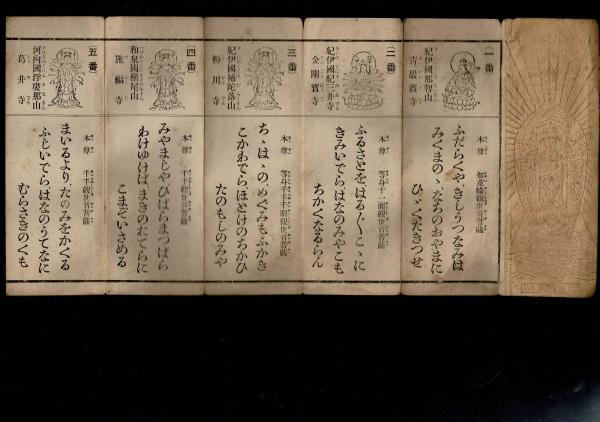 一番
紀伊國那智山
青巖渡寺
本尊 如意輪觀世音菩薩
ふだらくや、きしうつなみは
みくまの、なちのおやまに
ひゞくたきつせ
二番
紀伊國紀三井寺
金剛寶寺
本尊 等身十一面觀世音菩薩
ふるさとを、はる〴〵こゝに
きみいでらはなのみやこも
ちかくなるらん
三番
紀伊國補陀落山
粉川寺
本尊 等身千手千眼觀世音菩薩
ちゝはゝの、めぐみもふかき
こかわでらほとけのちかひ
たのもしのみや
四番
和泉國槇尾山
施福寺
本尊 千手觀世音菩薩
みやまじやひばらまつばら
わけゆけば、まきのおてらに
こまぞいさめる
五番
河內國
葛井寺
本尊 千手觀世音菩薩
まいるより、たのみをかくる
ふじいでらはなのうてなに
むらさきのくも